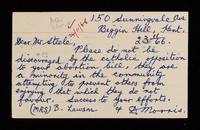 150 Sunningvale Ave
Biggin Hill, Kent.
23rd
Dear Mr Steele,
Please do not be
discouraged by the catholic opposition
to your abortion bill, they are
a minority in the community
attempting to prevent other from
enjoying that which they do not
favour. Success to your efforts.
(MRS) B. Lawson & D. Morris.